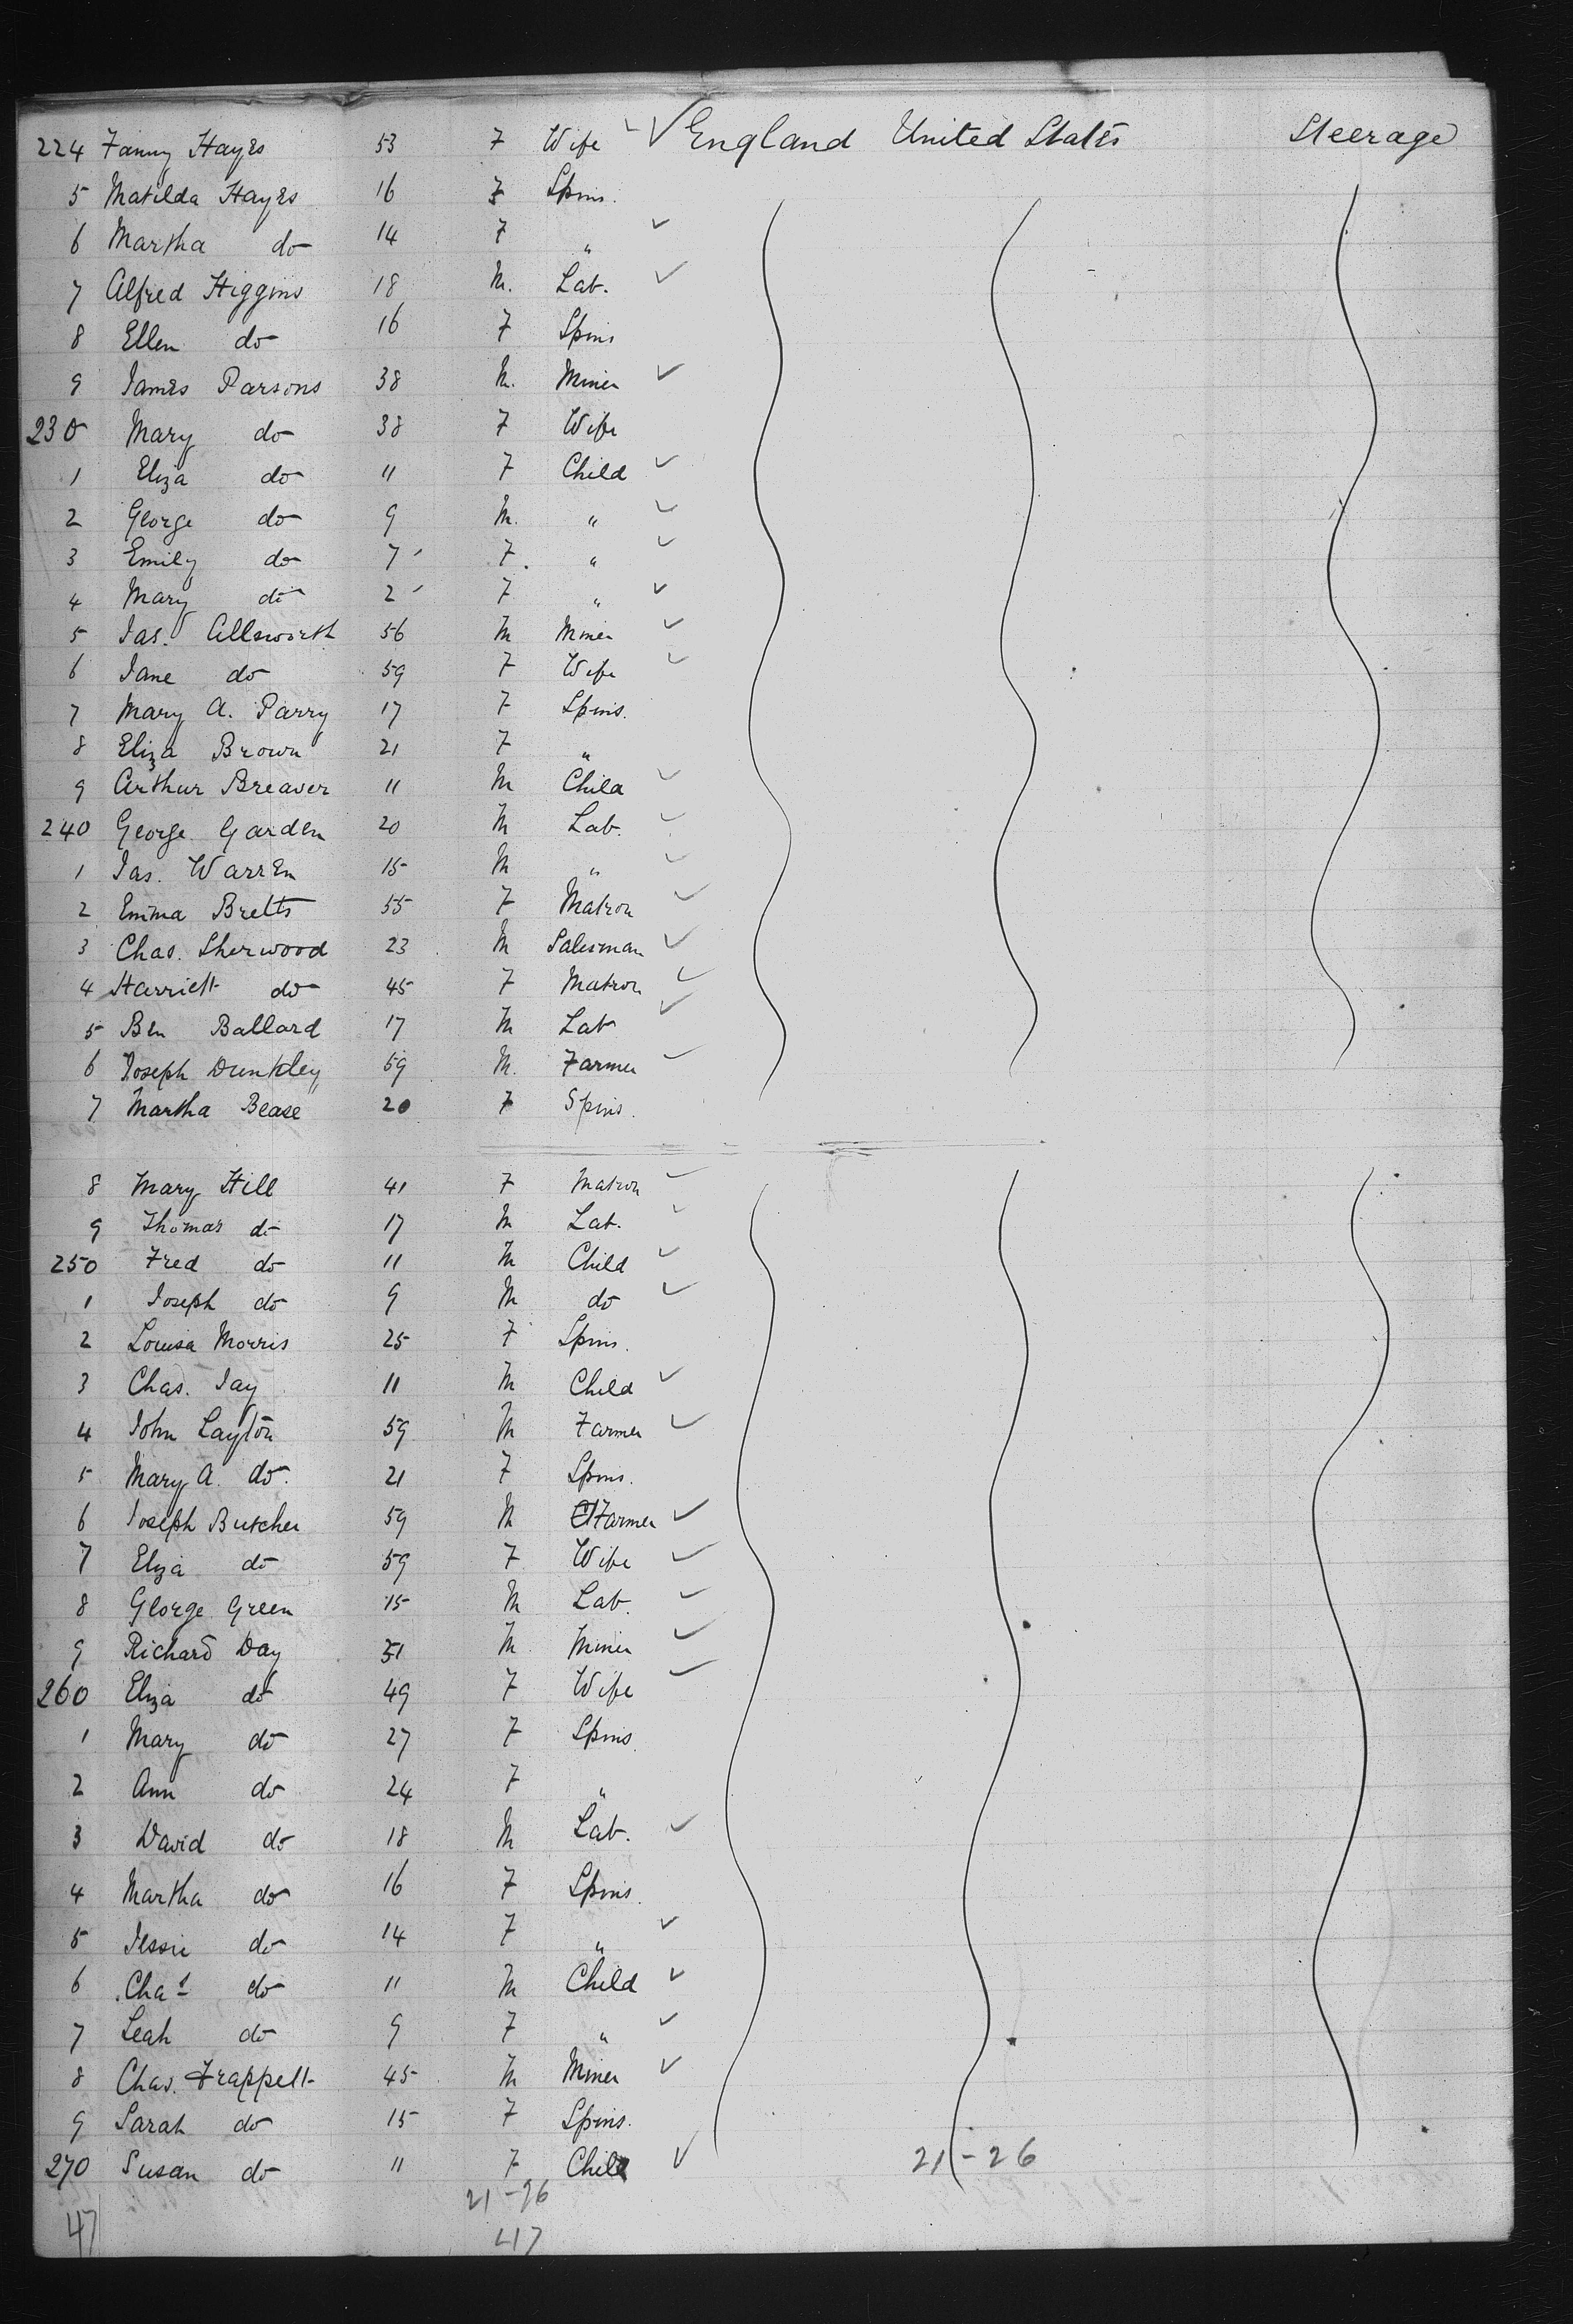 224 Fanny Hayes 53 F Wife England United States Steerage
5 Matilda Hayes 16 F Spins.
6 Martha do 14 F "
7 Alfred Higgins 18 M. Lab.
8 Ellen do 16 F Spins
9 James Parsons 38 M. Miner
230 Mary do 38 F Wife
1 Eliza do 11 F Child
2 George do 9 M. "
3 Emily do 7 F. "
4 Mary do 2 F "
5 Jas. Allsworth 56 M Miner
6 Jane do 59 F Wife
7 Mary A. Parry 17 F Spins.
8 Eliza Brown 21 F "
9 Arthur Breaver 11 M Child
240 George Garden 20 M Lab.
1 Jas. Warren 15 M "
2 Emma Bretts 55 F Matron
3 Chas. Sherwood 23 M Salesman
4 Harriett do 45 F Matron
5 Ben Ballard 17 M Lab
6 Joseph Dunkley 59 M. Farmer
7 Martha Bease 20 F Spins.
8 Mary Hill 41 F Matron
9 Thomas do 17 M Lab.
250 Fred do 11 M Child
1 Joseph do 9 M do
2 Louisa Morris 25 F Spins.
3 Chas. Jay 11 M Child
4 John Layton 59 M Farmer
5 Mary A. do. 21 F Spins.
6 Joseph Butcher 59 M Farmer
7 Eliza do 59 F Wife
8 George Green 15 M Lab.
9 Richard Day 51 M Miner
260 Eliza do 49 F Wife
1 Mary do 27 F Spins.
2 Ann do 24 F "
3 David do 18 M Lab.
4 Martha do 16 F Spins.
5 Jessie do 14 F "
6 Chas do 11 M Child
7 Leah do 9 F "
8 Chas. Trappett 45 M Miner
9 Sarah do 15 F Spins.
270 Susan do 11 F Child 21-26
21-26
47 47